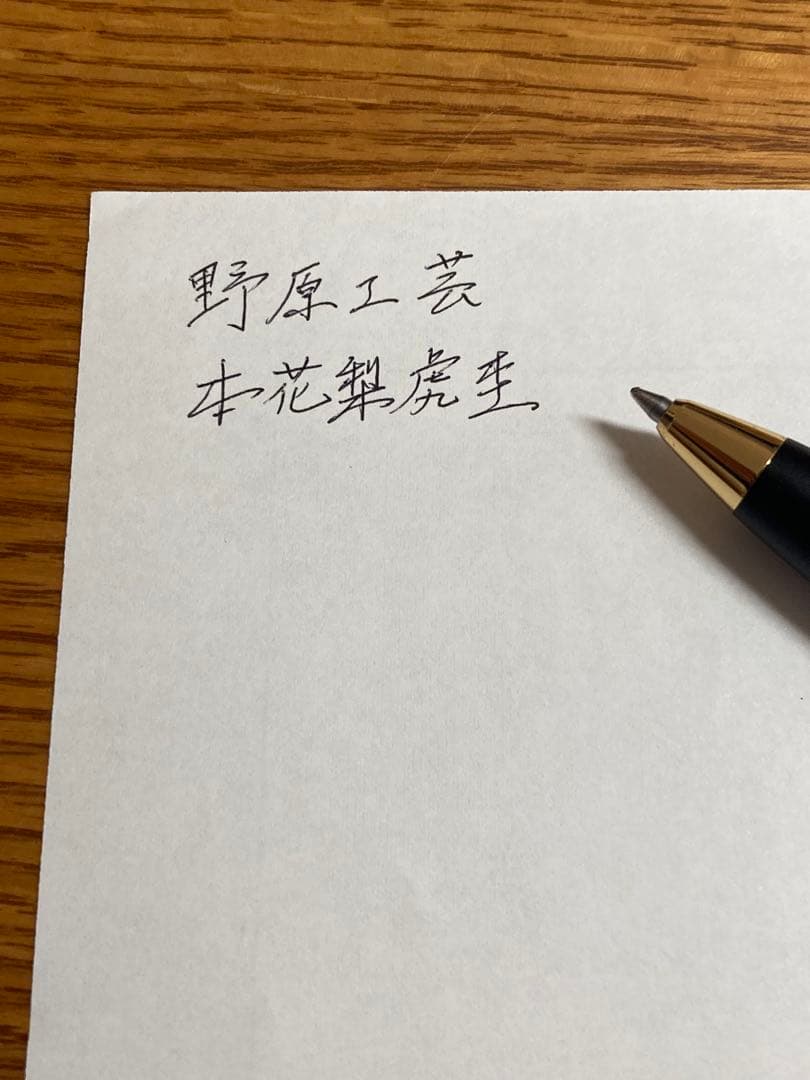 野原工芸
本花梨虎杢